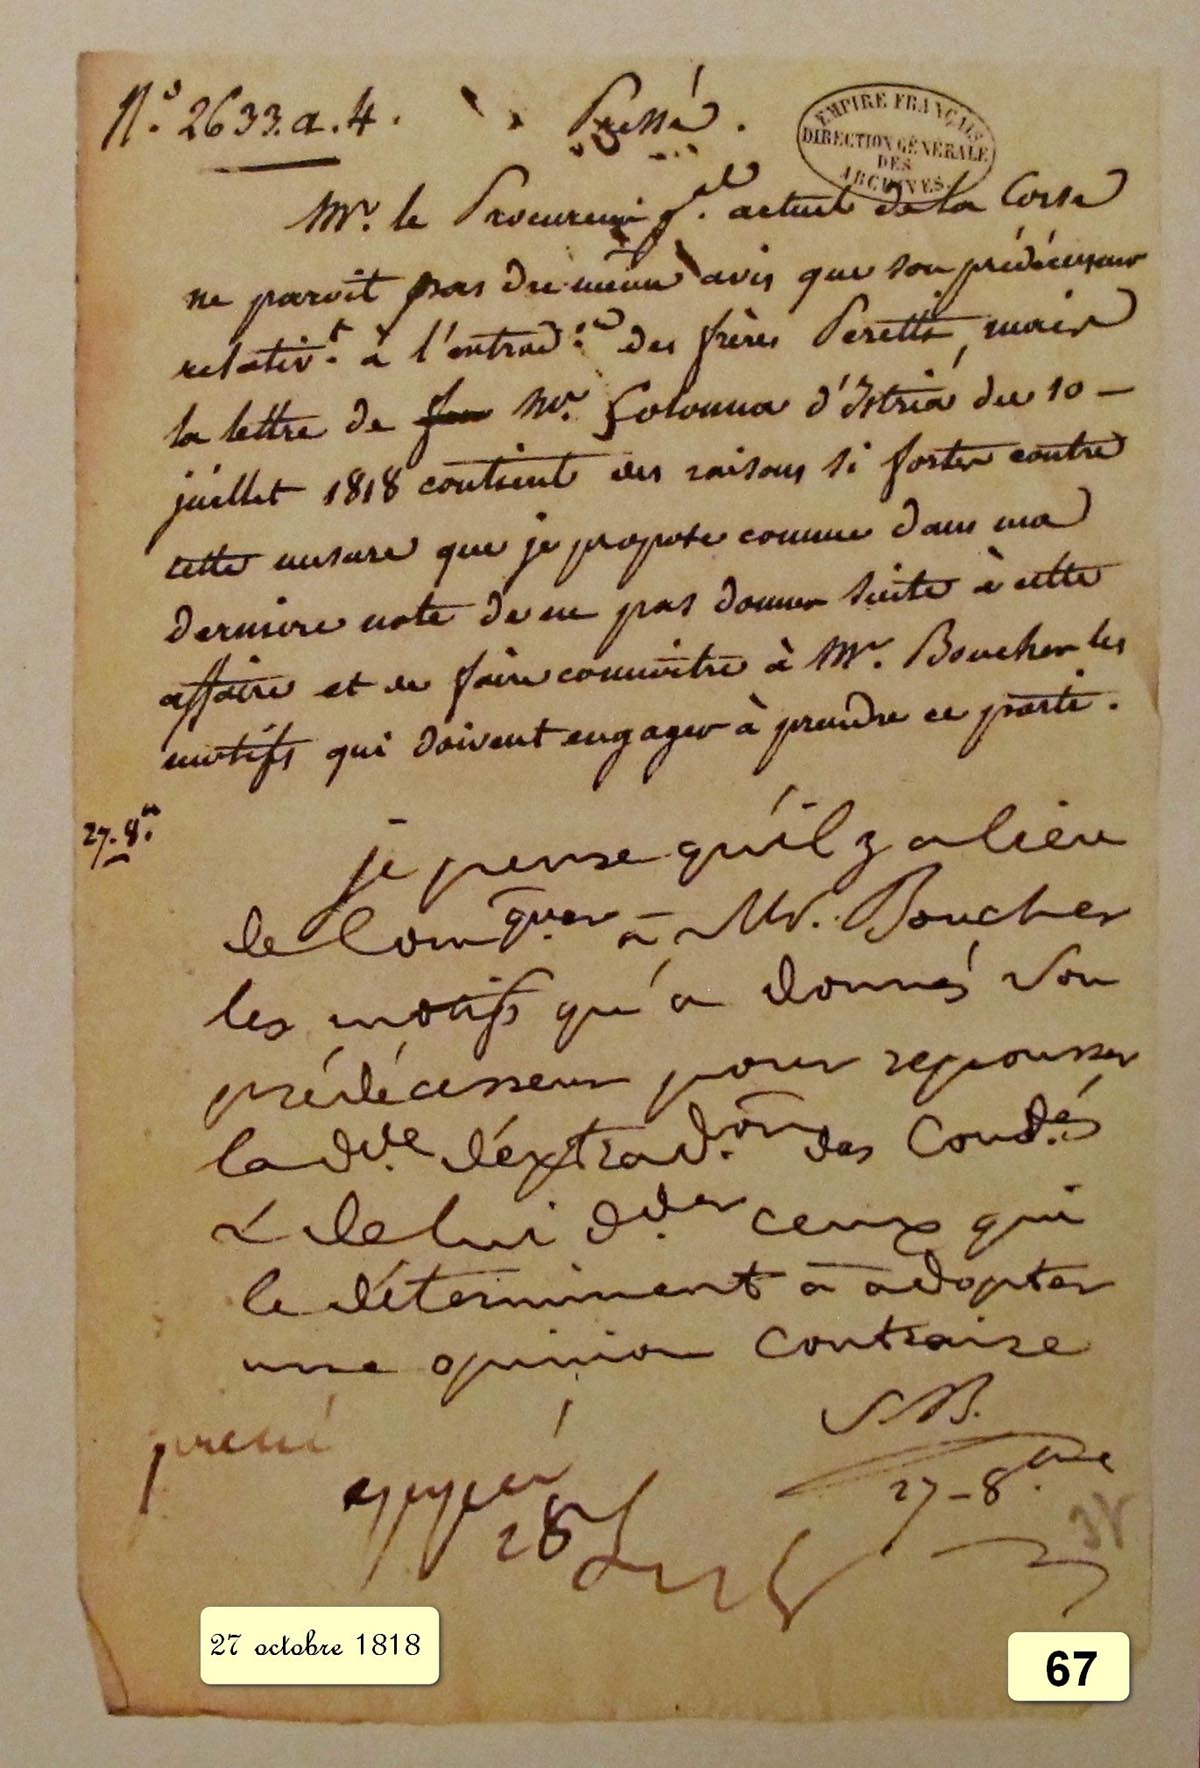 N.° 2633.a.4.
Pressé.
EMPIRE FRANÇAIS
DIRECTION GÉNÉRALE
DES
ARCHIVES.
Mr. le Procureur g.al actuel de la Corse
ne paroit pas du même avis que son prédécesseur
relativ.t à l'extrad.on des frères Peretti, mais
la lettre de feu Mr. Colonna d'Istria du 10 —
juillet 1818 contient des raisons si fortes contre
cette mesure que je propose comme dans ma
dernière note de ne pas donner suite à cette
affaire et de faire connoître à Mr. Boucher les
motifs qui doivent engager à prendre ce parti.
27. 8.re
je pense qu'il y a lieu
de Comquer à Mr. Boucher
les motifs qu'a donnés son
prédécesseur pour repousser
la dde d'éxtrad.on des Cond.és
& de lui dder ceux qui
le déterminent à adopter
une opinion contraire
S.B.
27 - 8.bre
pressé
28
27 octobre 1818
67